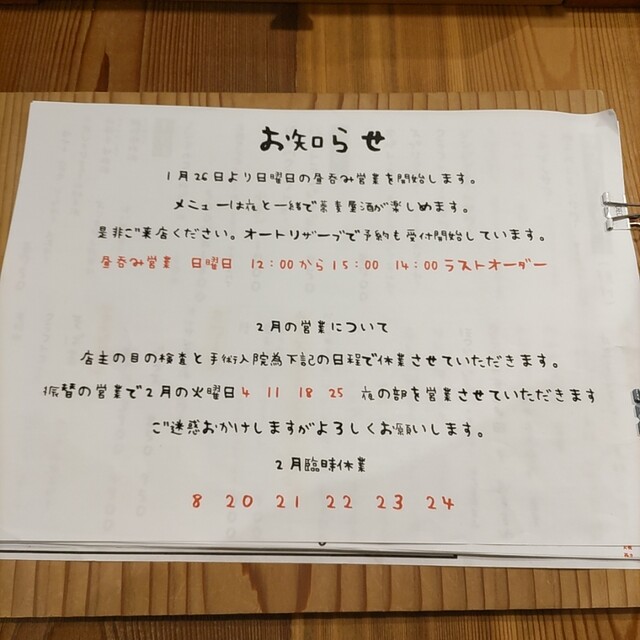 お知らせ
1月26日より日曜日の昼呑み営業を開始します。
メニューは夜と一緒で蕎麦屋酒が楽しめます。
是非ご来店ください。オートリザーブで予約も受付開始しています。
昼呑み営業 日曜日 12:00から15:00 14:00ラストオーダー
2月の営業について
店主の目の検査と手術入院為下記の日程で休業させていただきます。
振替の営業で2月の火曜日4 11 18 25 夜の部を営業させていただきます
ご迷惑おかけしますがよろしくお願いします。
2月臨時休業
8 20 21 22 23 24